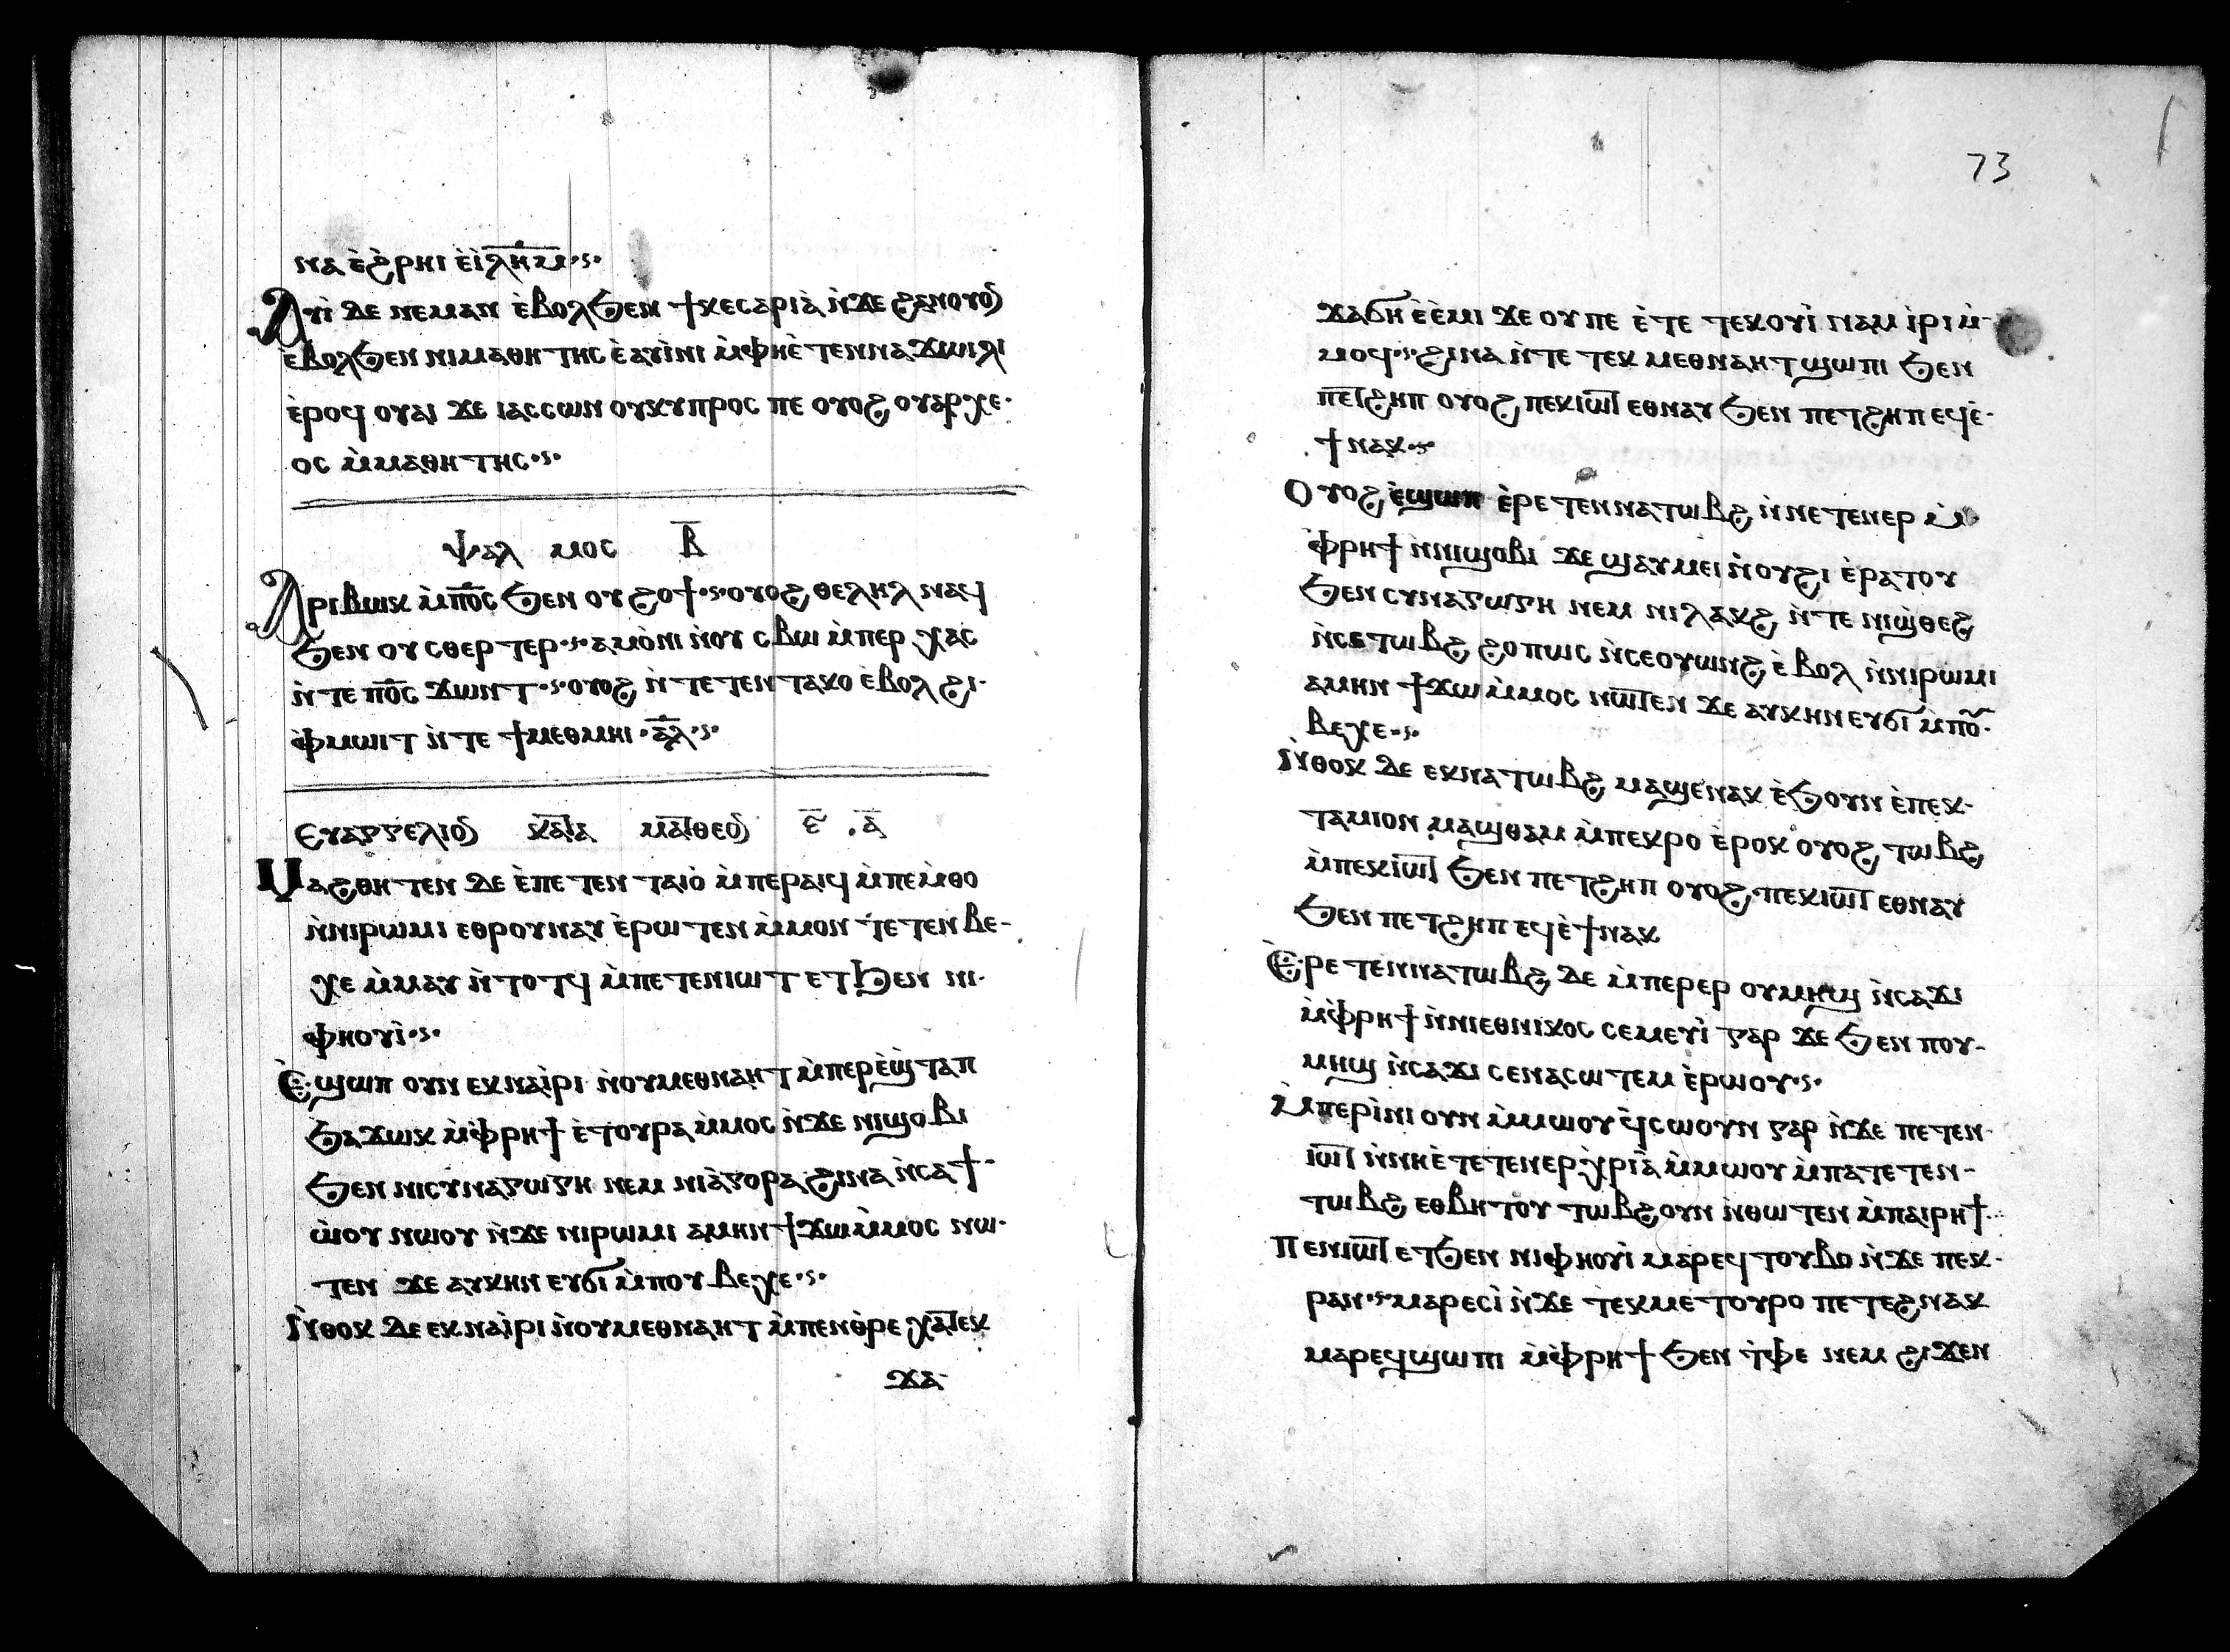 ⲛⲁ ⲉ̀ϩⲣⲏⲓ ⲉ̀ⲓ̀ⲗⲏ̅ⲙ̅·ⲋ·
Ⲁⲩⲓ̀ ⲇⲉ ⲛⲉⲙⲁⲛ ⲉ̀ⲃⲟⲗϧⲉⲛ ϯⲕⲉⲥⲁⲣⲓⲁ̀ ⲛ̀ϫⲉ ϩⲁⲛⲟⲩⲟ̅
ⲉ̀ⲃⲟⲗϧⲉⲛ ⲛⲓⲙⲁⲑⲏⲧⲏⲥ ⲉ̀ⲁⲩⲓⲛⲓ ⲙ̀ⲫⲏⲉ̀ⲧⲉⲛⲛⲁϫⲱⲓⲗⲓ
ⲉ̀ⲣⲟϥ ⲟⲩⲁⲓ ϫⲉ ⲓⲁⲥⲥⲱⲛ ⲟⲩⲕⲩⲡⲣⲟⲥ ⲡⲉ ⲟⲩⲟϩ ⲟⲩⲁⲣⲭⲉ·
ⲟⲥ ⲙ̀ⲙⲁⲑⲏⲧⲏⲥ·ⲋ·
ⲯⲁⲗ ⲙⲟⲥ ⲃ̅
Ⲁⲣⲓⲃⲱⲕ ⲙ̀ⲡⲟ̅ⲥ̅ ϧⲉⲛ ⲟⲩϩⲟϯ·ⲋ·ⲟⲩⲟϩ ⲑⲉⲗⲏⲗ ⲛⲁϥ
ϧⲉⲛ ⲟⲩⲥⲑⲉⲣⲧⲉⲣ·ⲋ·ⲁⲙⲟ̀ⲛⲓ ⲛ̀ⲟⲩⲥⲃⲱ ⲙ̀ⲡⲉⲣⲭⲁⲥ
ⲛ̀ⲧⲉ ⲡⲟ̅ⲥ̅ ϫⲱⲛⲧ·ⲋ·ⲟⲩⲟϩ ⲛ̀ⲧⲉⲧⲉⲛⲧⲁⲕⲟ ⲉ̀ⲃⲟⲗ ϩⲓ·
ⲫ̀ⲙⲱⲓⲧ ⲛ̀ⲧⲉ ϯⲙⲉⲑⲙⲏⲓ·ⲁ̅ⲗ̅·ⲋ·
Ⲉⲩⲁⲅⲅⲉⲗⲓⲟ̅ ⲕⲁ̅ⲧⲁ ⲙⲁ̅ⲧⲑⲉⲟ̅ ⲉ̅ . ⲁ̅
Ⲙⲁϩⲑⲏⲧⲉⲛ ⲇⲉ ⲉ̀ⲡⲉⲧⲉⲛⲧⲁⲓⲟ̀ ⲙ̀ⲡⲉⲣⲁⲓϥ ⲙ̀ⲡⲉⲙ̀ⲑⲟ
ⲛ̀ⲛⲓⲣⲱⲙⲓ ⲉⲑⲣⲟⲩⲛⲁⲩ ⲉ̀ⲣⲱⲧⲉⲛ ⲙ̀ⲙⲟⲛ ⲧⲉⲧⲉⲛⲃⲉ-
ⲭⲉ ⲙ̀ⲙⲁⲩ ⲛ̀ⲧⲟⲧϥ ⲙ̀ⲡⲉⲧⲉⲛⲓⲱⲧ ⲉⲧϧⲉⲛ ⲛⲓ·
ⲫⲏⲟⲩⲓ̀·ⲋ·
Ⲉ̀ϣⲱⲡ ⲟⲩⲛ ⲉⲕⲛⲁⲓ̀ⲣⲓ ⲛ̀ⲟⲩⲙⲉⲑⲛⲁⲏⲧ ⲙ̀ⲡⲉⲣⲉ̀ϣⲧⲁⲡ
ϧⲁϫⲱⲕ ⲙ̀ⲫ̀ⲣⲏϯ ⲉ̀ⲧⲟⲩⲣⲁ ⲙ̀ⲙⲟⲥ ⲛ̀ϫⲉ ⲛⲓϣⲟⲃⲓ
ϧⲉⲛ ⲛⲓⲥⲩⲛⲁⲅⲱⲅⲏ ⲛⲉⲙ ⲛⲓⲁ̀ⲅⲟⲣⲁ ϩⲓⲛⲁ ⲛ̀ⲥⲁϯ-
ⲱ̀ⲟⲩ ⲛⲱⲟⲩ ⲛ̀ϫⲉ ⲛⲓⲣⲱⲙⲓ ⲁⲙⲏⲛ ϯϫⲱⲙ̀ⲙⲟⲥ ⲛⲱ·
ⲧⲉⲛ ϫⲉ ⲁⲩⲕⲏⲛ ⲉⲩϭⲓ ⲙ̀ⲡⲟⲩⲃⲉⲭⲉ·ⲋ·
Ⲛ̀ⲑⲟⲕ ⲇⲉ ⲉⲕⲛⲁⲓ̀ⲣⲓ ⲛ̀ⲟⲩⲙⲉⲑⲛⲁⲏⲧ ⲙ̀ⲡⲉⲛⲑ̀ⲣⲉ ⲭⲁ̅ⲧⲉⲕ
ϫⲁ-
73
ϫⲁϭⲏ ⲉ̀ⲉ̀ⲙⲓ ϫⲉ ⲟⲩ ⲡⲉ ⲉ̀ⲧⲉ ⲧⲉⲕⲟⲩⲓ̀ⲛⲁⲙ ⲓ̀ⲣⲓ ⲙ̀-
ⲙⲟϥ·ⲋ·ϩⲓⲛⲁ ⲛ̀ⲧⲉ ⲧⲉⲕⲙⲉⲑⲛⲁⲏⲧ ϣⲱⲡⲓ ϧⲉⲛ
ⲡⲉ̅ⲧϩⲏⲡ ⲟⲩⲟϩ ⲡⲉⲕⲓⲱ̅ⲧ ⲉⲑⲛⲁⲩ ϧⲉⲛ ⲡⲉⲧϩⲏⲡ ⲉϥⲉ̀·
ϯⲛⲁⲕ·ⲋ·
Ⲟⲩⲟϩ ⲉ̀ϣⲱⲡ ⲉ̀ⲣⲉⲧⲉⲛⲛⲁⲧⲱⲃϩ ⲛ̀ⲛⲉⲧⲉⲛⲉⲣ ⲙ̀
ⲫ̀ⲣⲏϯ ⲛ̀ⲛⲓϣⲟⲃⲓ ϫⲉ ϣⲁⲩⲙⲉⲓ ⲛ̀ⲟϩⲓ ⲉ̀ⲣⲁⲧⲟⲩ
ϧⲉⲛ ⲥⲩⲛⲁⲅⲱⲅⲏ ⲛⲉⲙ ⲛⲓⲗⲁⲕϩ ⲛ̀ⲧⲉ ⲛⲓϣ̀ⲑⲉϩ
ⲛ̀ⲥⲉⲧⲱⲃϩ ϩⲟⲡⲱⲥ ⲛ̀ⲥⲉⲟⲩⲱⲛϩ ⲉ̀ⲃⲟⲗ ⲛ̀ⲛⲓⲣⲱⲙⲓ
ⲁⲙⲏⲛ ϯϫⲱ ⲙ̀ⲙⲟⲥ ⲛⲱ̅ⲧⲉⲛ ϫⲉ ⲁⲩⲕⲏⲛ ⲉⲩϭⲓ ⲙ̀ⲡⲟ̃·
ⲃⲉⲭⲉ·ⲋ·
Ⲛ̀ⲑⲟⲕ ⲇⲉ ⲉⲕⲛⲁⲧⲱⲃϩ ⲙⲁϣⲉⲛⲁⲕ ⲉ̀ϧⲟⲩⲛ ⲉ̀ⲡⲉⲕ-
ⲧⲁⲙⲓⲟⲛ ⲙⲁϣⲑⲁⲙ ⲙ̀ⲡⲉⲕⲣⲟ ⲉ̀ⲣⲟⲕ ⲟⲩⲟϩ ⲧⲱⲃϩ
ⲙ̀ⲡⲉⲕⲓⲱ̅ⲧ ϧⲉⲛ ⲡⲉⲧϩⲏⲡ ⲟⲩⲟϩ ⲡⲉⲕⲓⲱ̅ⲧ ⲉⲑⲛⲁⲩ
ϧⲉⲛ ⲡⲉⲧϩⲏⲡ ⲉϥⲉ̀ϯⲛⲁⲕ
Ⲉ̀ⲣⲉⲧⲉⲛⲛⲁⲧⲱⲃϩ ⲇⲉ ⲙ̀ⲡⲉⲣⲉⲣ ⲟⲩⲙⲏϣ ⲛ̀ⲥⲁϫⲓ
ⲙ̀ⲫ̀ⲣⲏϯ ⲛ̀ⲛⲓⲉⲑⲛⲓⲕⲟⲥ ⲥⲉⲙⲉⲩⲓ̀ ⲅⲁⲣ ϫⲉ ϧⲉⲛ ⲡⲟⲩ-
ⲙⲏϣ ⲛ̀ⲥⲁϫⲓ ⲥⲉⲛⲁⲥⲱⲧⲉⲙ ⲉ̀ⲣⲱⲟⲩ·ⲋ·
Ⲙ̀ⲡⲉⲣⲓ̀ⲛⲓ ⲟⲩⲛ ⲙ̀ⲙⲱⲟⲩ ϥ̀ⲥⲱⲟⲩⲛ ⲅⲁⲣ ⲛ̀ϫⲉ ⲡⲉⲧⲉⲛ·
ⲓⲱ̅ⲧ ⲛ̀ⲛⲏⲉ̀ⲧⲉⲧⲉⲛⲉⲣⲭⲣⲓⲁ̀ ⲙ̀ⲙⲱⲟⲩ ⲙ̀ⲡⲁⲧⲉⲧⲉⲛ-
ⲧⲱⲃϩ ⲉⲑⲃⲏⲧⲟⲩ ⲧⲱⲃϩ ⲟⲩⲛ ⲛ̀ⲑⲱⲧⲉⲛ ⲙ̀ⲡⲁⲓⲣⲏϯ
Ⲡⲉⲛⲓⲱ̅ⲧ ⲉⲧϧⲉⲛ ⲛⲓⲫⲏⲟⲩⲓ̀ ⲙⲁⲣⲉϥⲧⲟⲩⲃⲟ ⲛ̀ϫⲉ ⲡⲉⲕ·
ⲣⲁⲛ·ⲋ·ⲙⲁⲣⲉⲥⲓ̀ ⲛ̀ϫⲉ ⲧⲉⲕⲙⲉⲧⲟⲩⲣⲟ ⲡⲉⲧⲉϩⲛⲁⲕ
ⲙⲁⲣⲉϥϣⲱⲡⲓ ⲙ̀ⲫ̀ⲣⲏϯ ϧⲉⲛ ⲧ̀ⲫⲉ ⲛⲉⲙ ϩⲓϫⲉⲛ